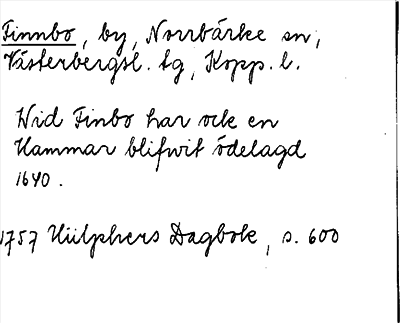 Finnbo, by, Norrbärke sn,
Västerbergsl. tg, Kopp. l.
Wid Finbo har ock en
Hammar blifwit ödelagd
1640.
1757 Hülphers Dagbok, s. 600